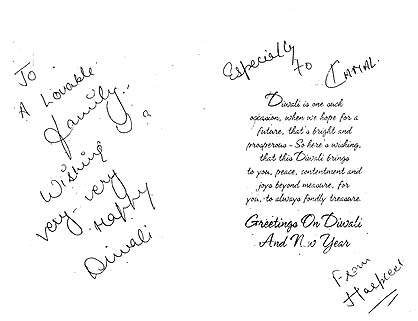 To
A Lovable
family..
a
Wishing
very-very
Happy
Diwali
Especially
to
Diwali is one such
occasion, when we hope for a
future, that's bright and
prosperous - So here's wishing,
that this Diwali brings
to you, peace, contentment and
joys beyond measure, for
you, to always fondly treasure.
Greetings On Diwali
And N.w Year
From